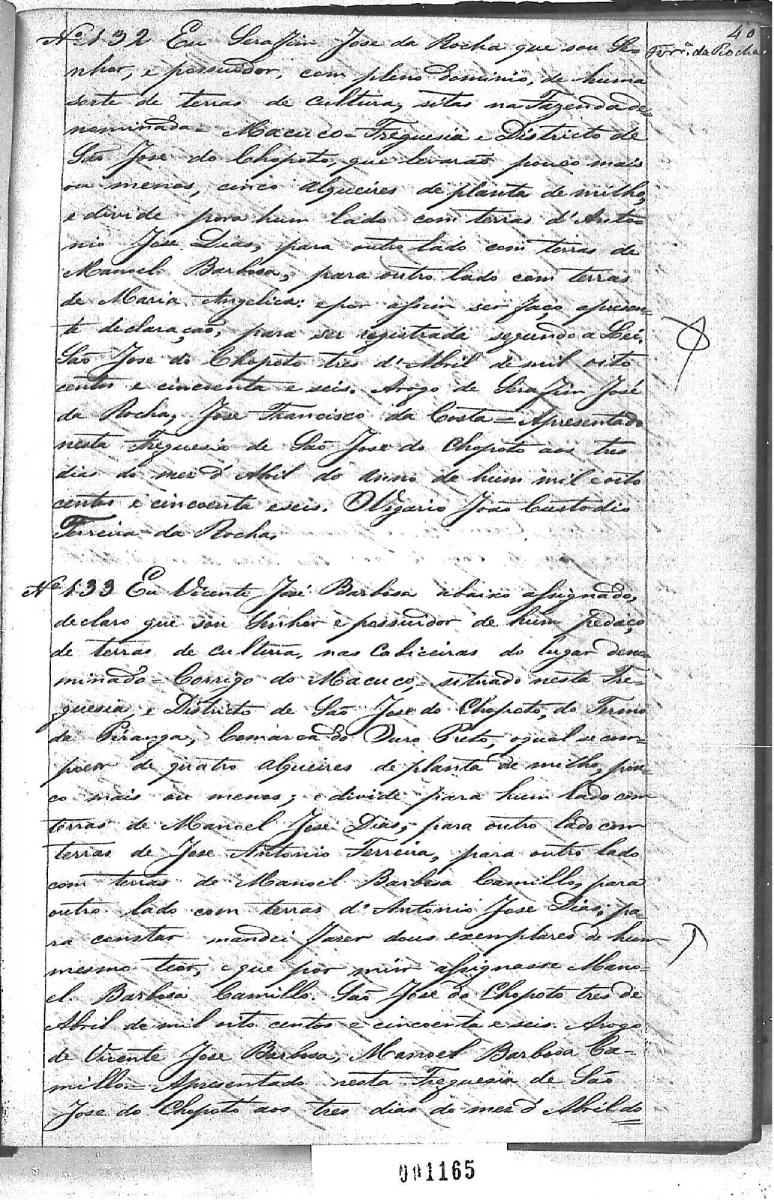 40
Ferr.ª da Rocha
Nº 132 Eu Serafim Jose da Rocha que sou Se
nhor, e possuidor, com pleno Dominio, de huma
sorte de terras de cultura, sitas na Fazenda de
nominada = Macuco = Freguesia e Districto de
São Jose do Chopoto, que levará pouco mais
ou menos, cinco alqueires de planta de milho,
e divide para hum lado com terras d'Anto-
nio Jose Dias, para outro lado com terras de
Manoel Barbosa, para outro lado com terras
de Maria Angelica: e por assim ser faço apresen-
te declaração, para ser registrada segundo a Lei,
São Jose do Chopoto tres d'Abril de mil oito
centos e cincoenta e seis. Arogo de Serafim José
da Rocha, Jose Francisco da Costa = Apresentado
nesta Freguesia de São Jose do Chopoto aos tres
dias do mez d'Abril do anno de hum mil e oito
centos e cincoenta e seis. O Vigario João Custodio
Ferreira da Rocha.
Nº 133 Eu Vicente José Barbosa abaixo assignado,
declaro que sou Senhor e possuidor de hum pedaço
de terras de cultura, nas Cabiceiras do lugar deno
minado = Corrigo do Macuco, = situado nesta Fre-
guesia e Districto de São Jose do Chopoto, do Termo
da Piranga, Comarca do Ouro Preto, o qual se com-
poem de quatro alqueires de planta de milho, pou-
co mais ou menos; e divide para hum lado com
terras de Manoel Jose Dias, para outro lado com
terras de Jose Antonio Ferreira, para outro lado
com terras de Manoel Barbosa Camillo, para
outro lado com terras d'Antonio Jose Dias; pa-
ra constar mandei fazer dous exemplares de hum
mesmo teor, e que por mim assignasse Mano-
el Barbosa Camillo. São Jose do Chopoto tres de
Abril de mil oito centos e cincoenta e seis. Arogo
de Vicente Jose Barbosa, Manoel Barbosa Ca-
millo = Apresentado nesta Freguesia de São
Jose do Chopoto aos tres dias do mez d'Abril do
001165